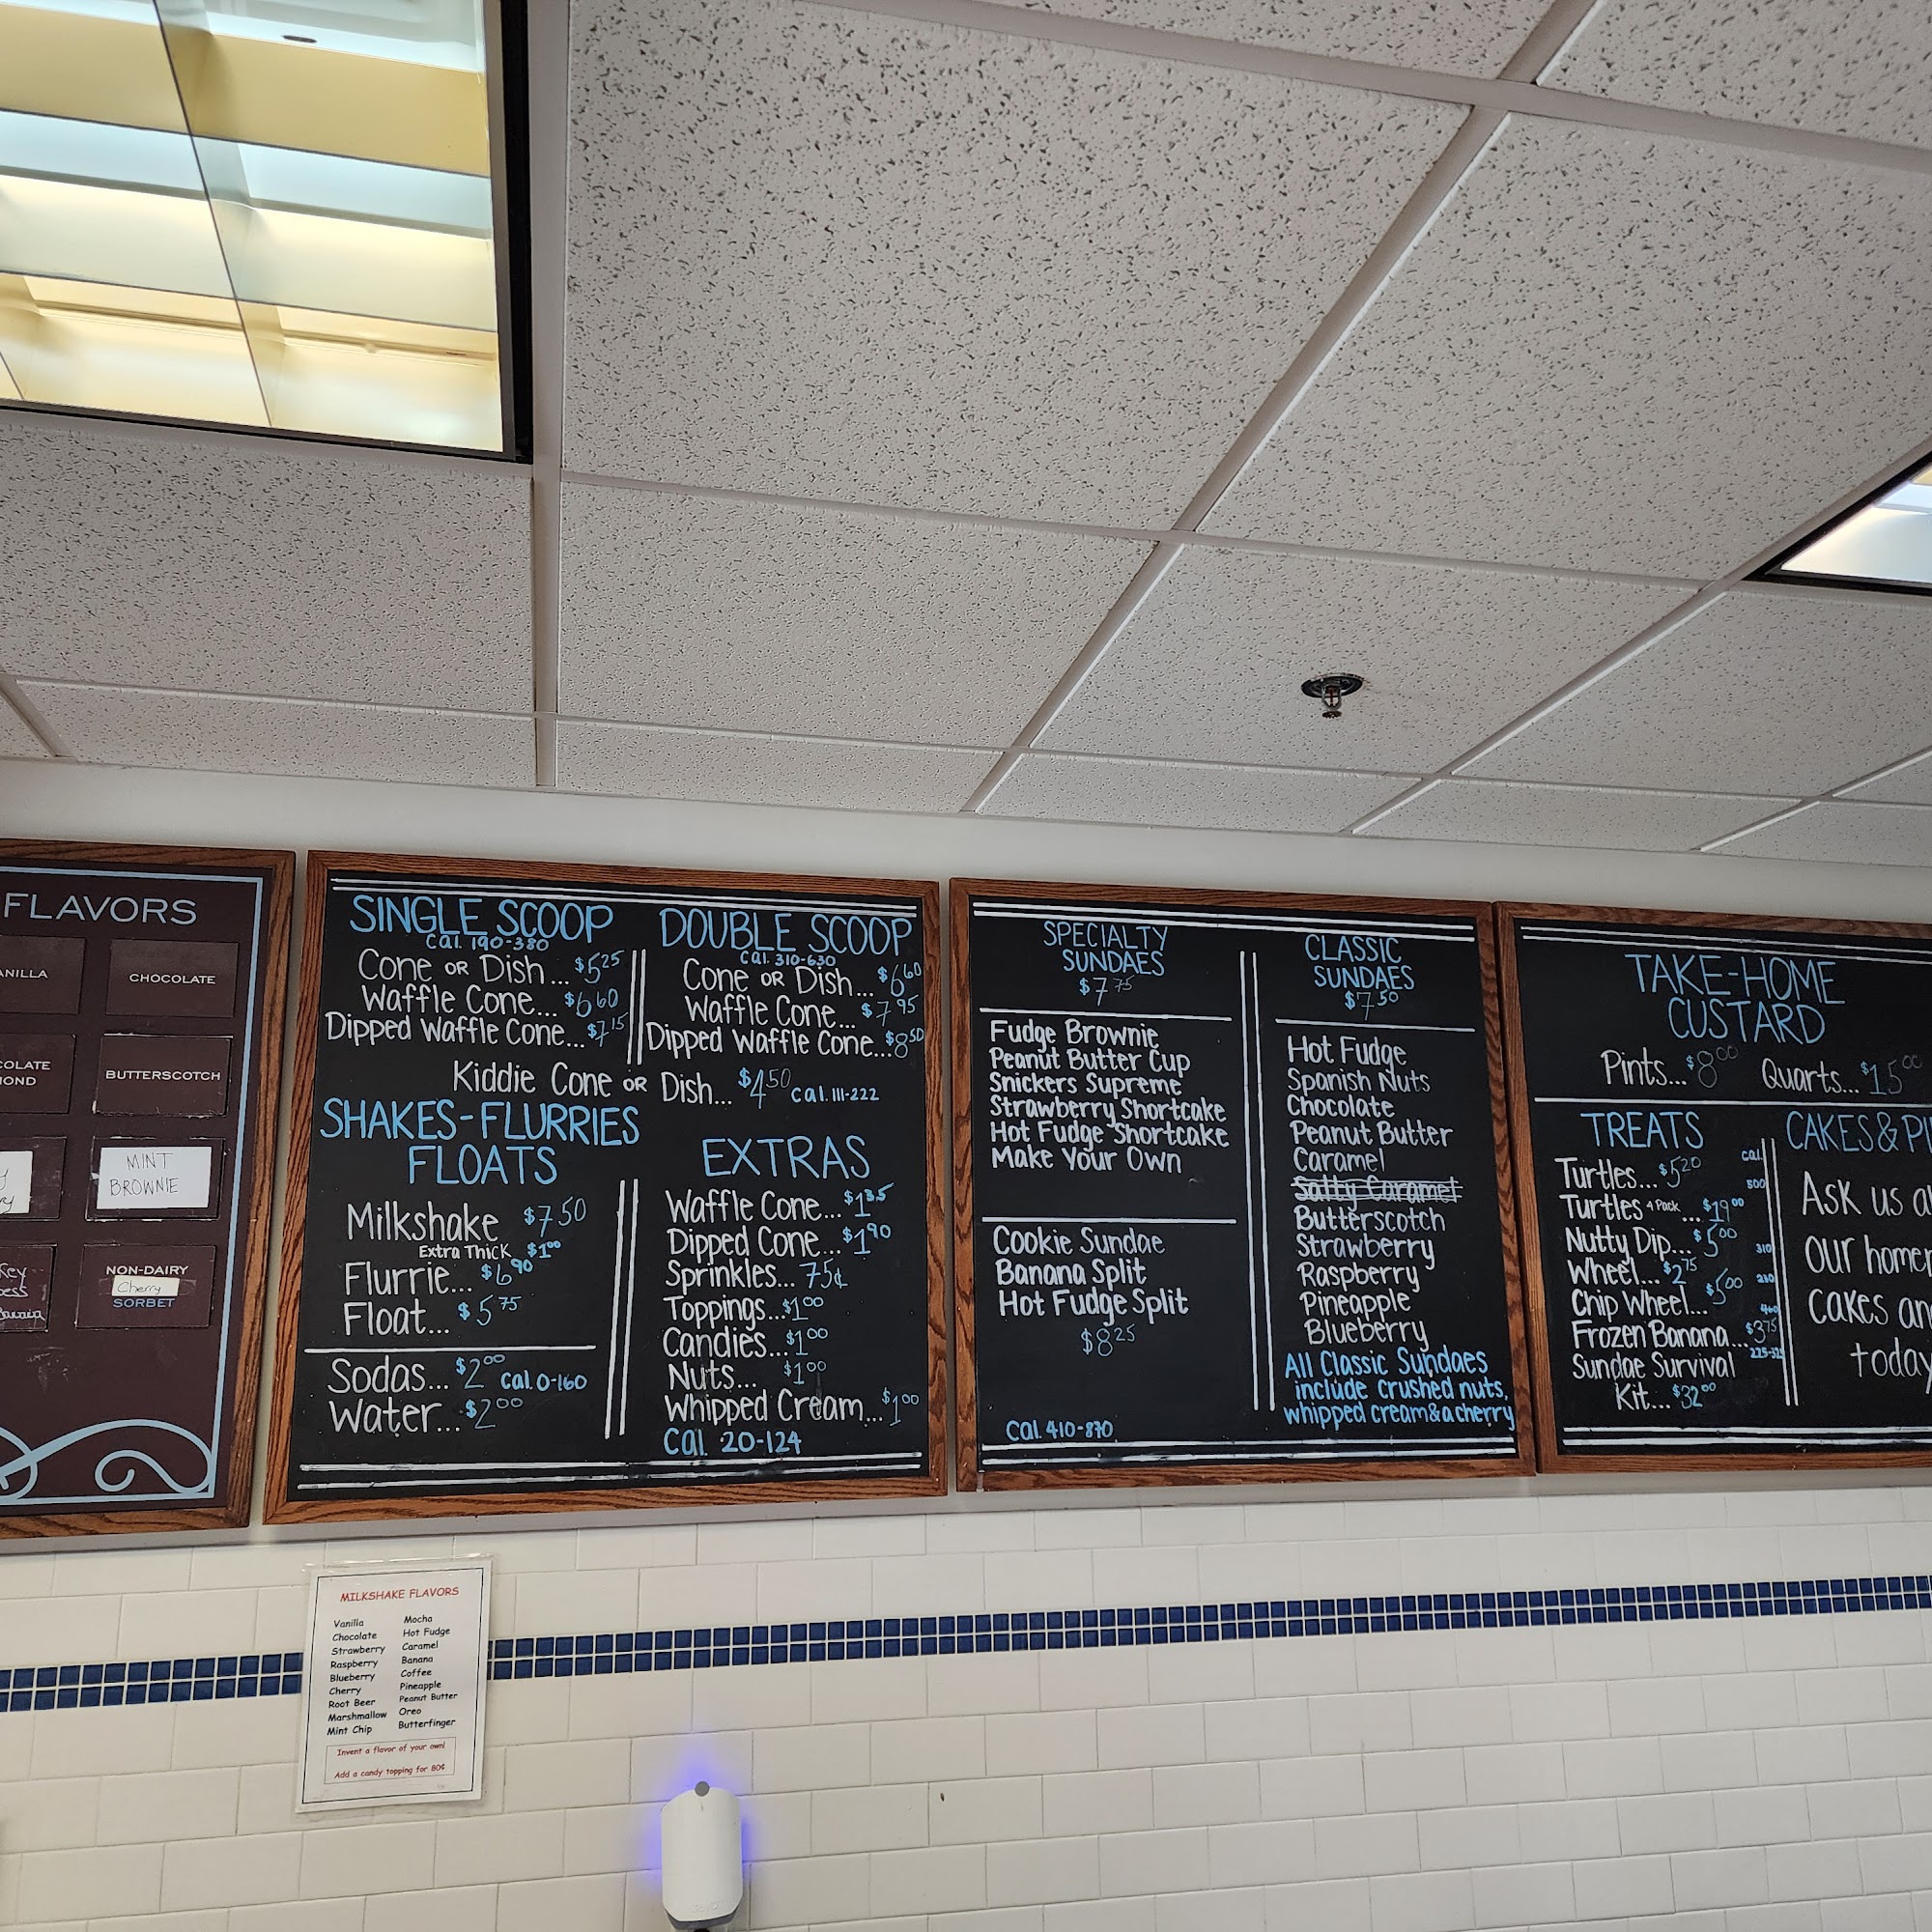 FLAVORS
ANILLA
CHOCOLATE
OLATE
OND
BUTTERSCOTCH
MINT
BROWNIE
NON-DAIRY
Cherry
SORBET
SINGLE SCOOP
Cal. 190-380
Cone or Dish... $5.25
Waffle Cone... $6.60
Dipped Waffle Cone... $7.15
DOUBLE SCOOP
Cal. 310-630
Cone or Dish... $6.60
Waffle Cone... $7.95
Dipped Waffle Cone... $8.50
Kiddie Cone or Dish... $4.50 Cal. 111-222
SHAKES-FLURRIES
FLOATS
Milkshake $7.50
Extra Thick $1.00
Flurrie... $6.90
Float... $5.75
Sodas... $2.00 Cal. 0-160
Water... $2.00
EXTRAS
Waffle Cone... $1.35
Dipped Cone... $1.90
Sprinkles... 75¢
Toppings... $1.00
Candies... $1.00
Nuts... $1.00
Whipped Cream... $1.00
Cal. 20-124
SPECIALTY
SUNDAES
$7.75
Fudge Brownie
Peanut Butter Cup
Snickers Supreme
Strawberry Shortcake
Hot Fudge Shortcake
Make Your Own
Cookie Sundae
Banana Split
Hot Fudge Split
$8.25
Cal. 410-870
CLASSIC
SUNDAES
$7.50
Hot Fudge
Spanish Nuts
Chocolate
Peanut Butter
Caramel
Salty Caramel
Butterscotch
Strawberry
Raspberry
Pineapple
Blueberry
All Classic Sundaes
include crushed nuts,
whipped cream & a cherry
TAKE-HOME
CUSTARD
Pints... $8.00 Quarts... $15.00
TREATS
Cal.
Turtles... $5.20
500
Turtles 4 Pack... $19.00
Nutty Dip... $5.00 310
Wheel... $2.75 210
Chip Wheel... $5.00 460
Frozen Banana... $3.75
225-325
Sundae Survival
Kit... $32.00
CAKES & PI
Ask us a
our home
cakes an
today
MILKSHAKE FLAVORS
Vanilla
Chocolate
Strawberry
Raspberry
Blueberry
Cherry
Root Beer
Marshmallow
Mint Chip
Mocha
Hot Fudge
Caramel
Banana
Coffee
Pineapple
Peanut Butter
Oreo
Butterfinger
Invent a flavor of your own!
Add a candy topping for 80¢